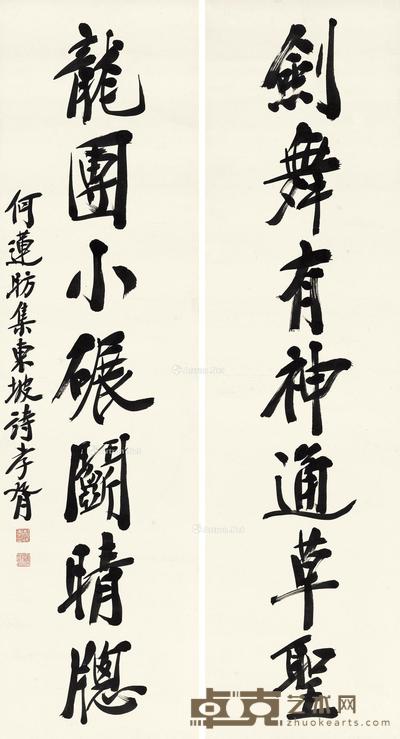 劍舞有神通草聖
龍團小碾鬬晴牕
何蓮昉集東坡詩孝胥
卓克艺术网
zhuokearts.com